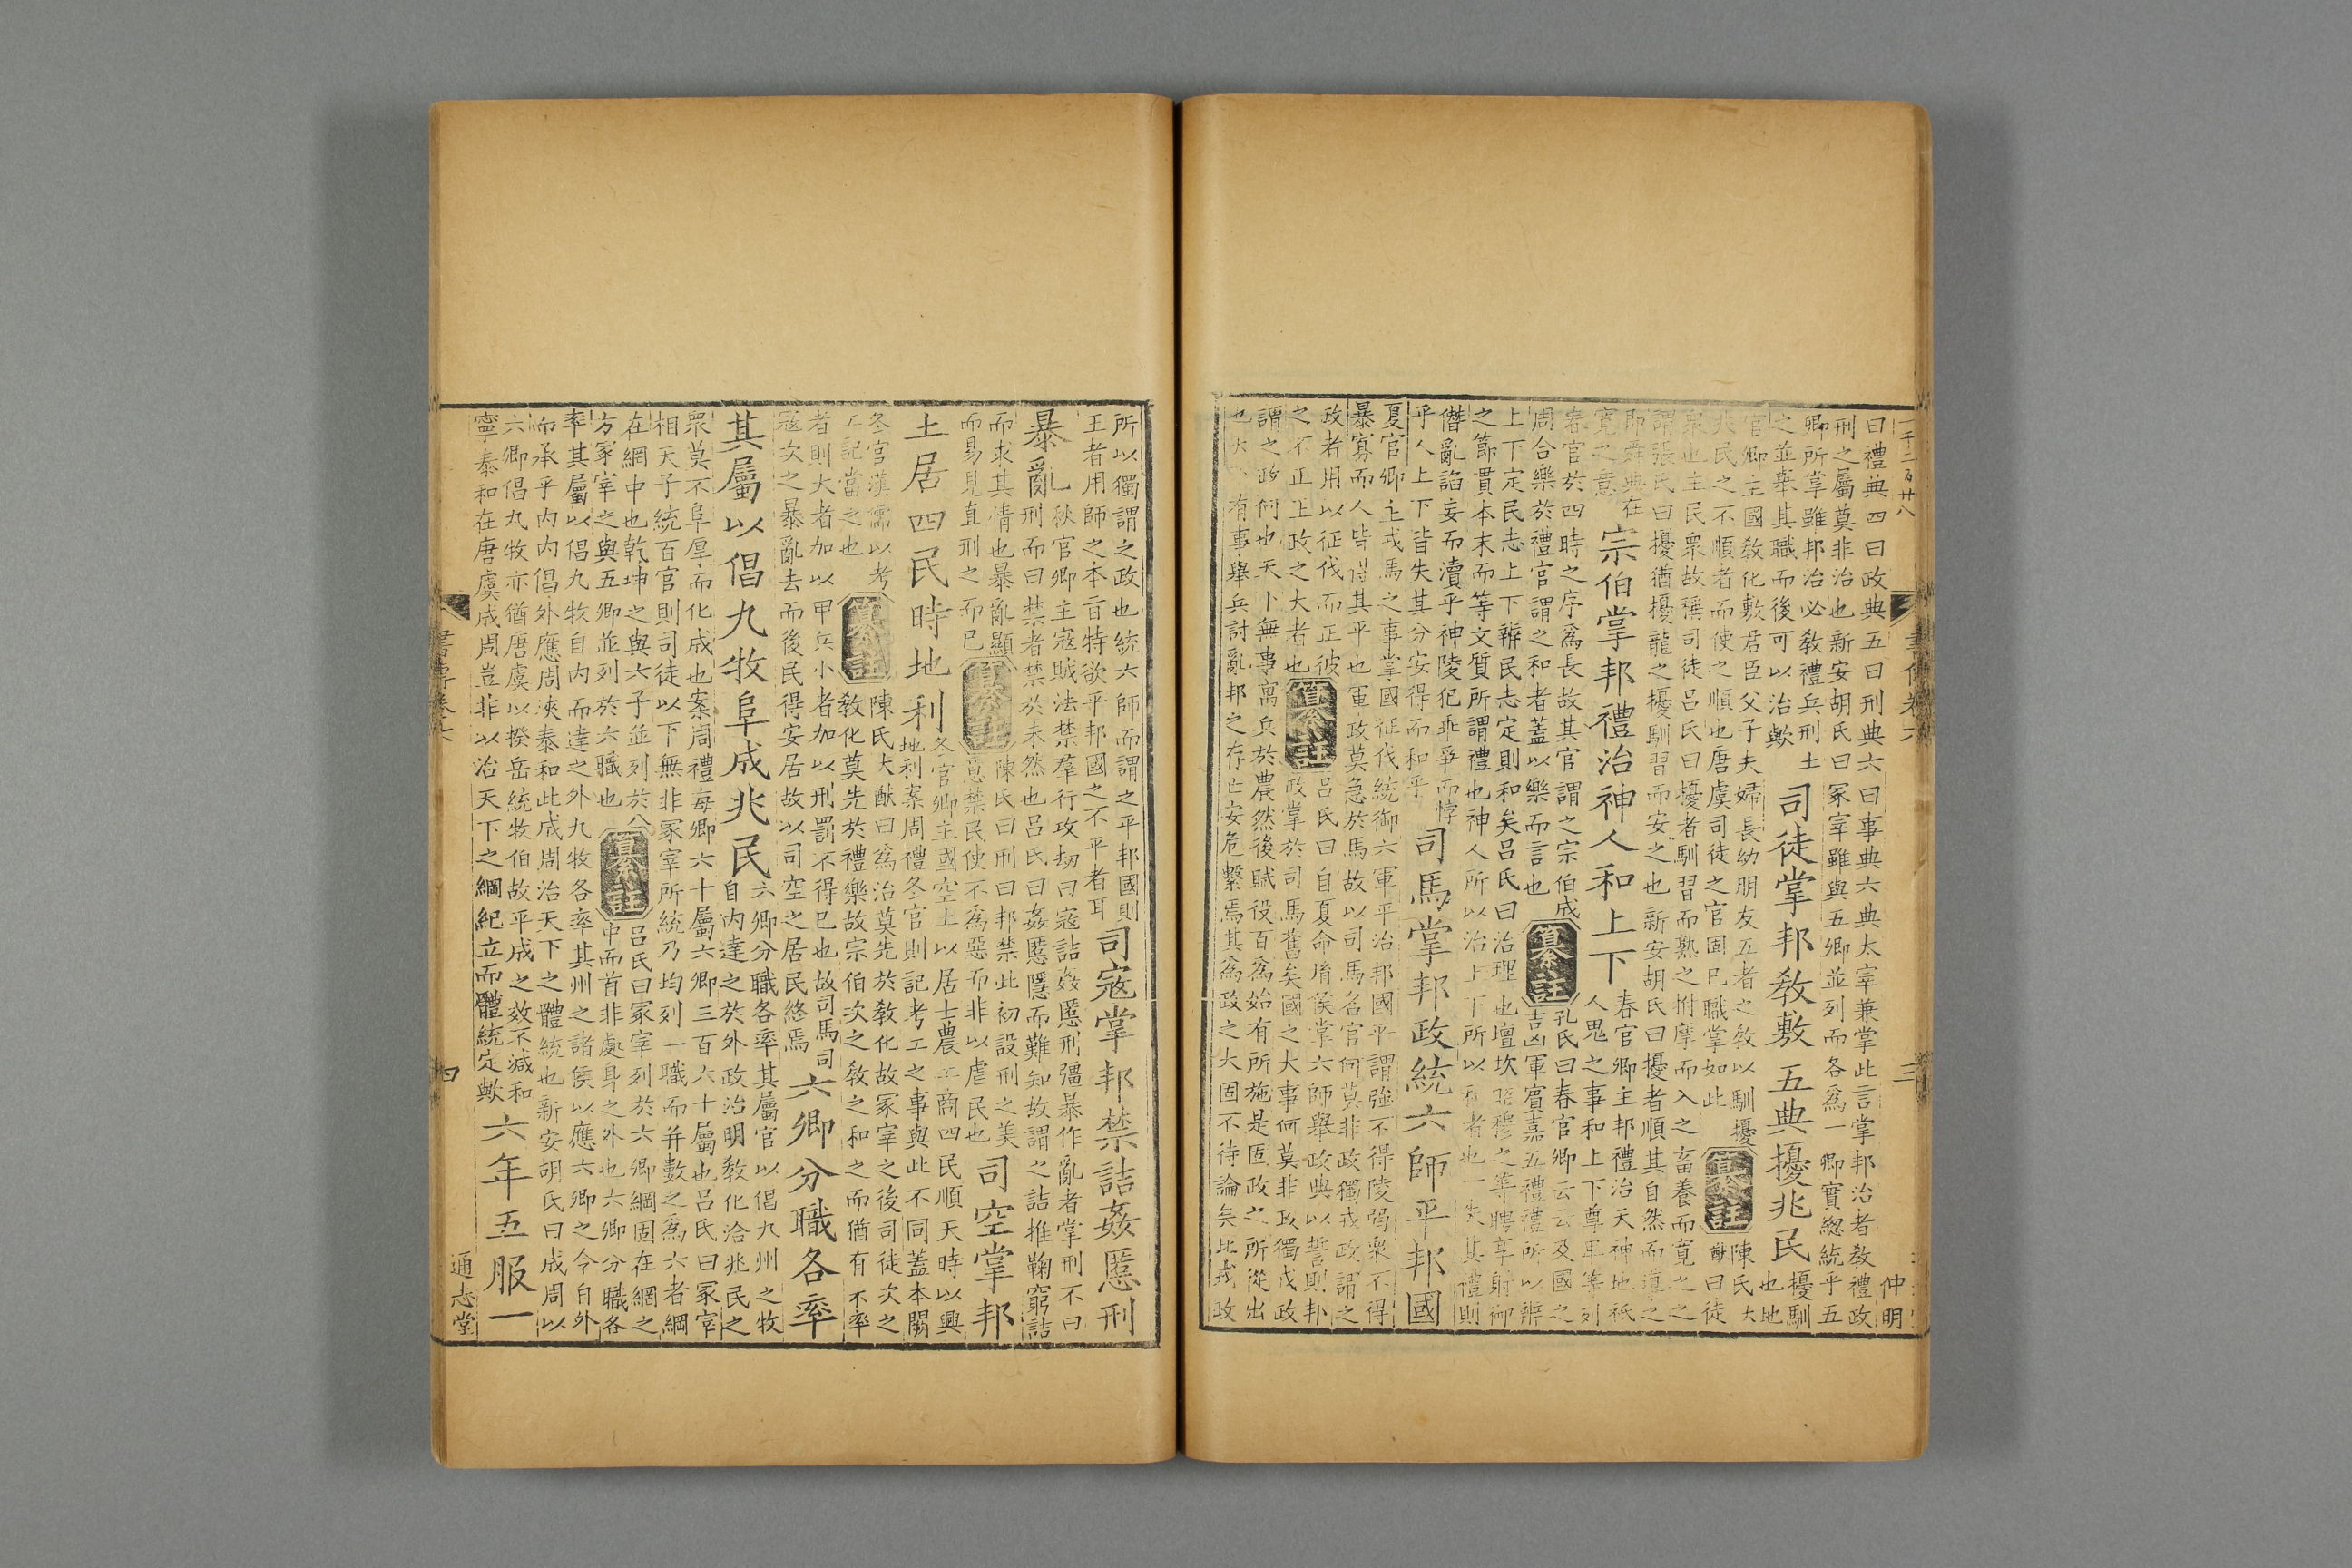 一千二百廿八
書傳卷六 三
仲明
曰禮典四曰政典五曰刑典六曰事典六典太宰兼掌此言掌邦治者敎禮政
刑之屬莫非治也新安胡氏曰冢宰雖與五卿並列而各爲一卿實緫統乎五
卿所掌雖邦治必敎禮兵刑土
之並舉其職而後可以治歟
司徒掌邦敎敷五典擾兆民
擾馴
也地
官卿主國敎化敷君臣父子夫婦長幼朋友五者之敎以馴擾
兆民之不順者而使之順也唐虞司徒之官固已職掌如此
纂註
陳氏大
猷曰徒
衆也主民衆故稱司徒呂氏曰擾者馴習而熟之拊摩而入之畜養而寛之之
謂張氏曰擾猶擾龍之擾馴習而安之也新安胡氏曰擾者順其自然而導之
即舜典在
寛之意
宗伯掌邦禮治神人和上下
春官卿主邦禮治天神地祇
人鬼之事和上下尊卑等列
春官於四時之序爲長故其官謂之宗伯成
周合樂於禮官謂之和者蓋以樂而言也
纂註
孔氏曰春官卿云云及國之
吉凶軍賓嘉五禮禮所以辨
上下定民志上下辨民志定則和矣呂氏曰治理也壇坎昭穆之等聘享射御
之節貫本末而等文質所謂禮也神人所以治上下所以和者也一失其禮則
僭亂諂妄而瀆乎神陵犯乖爭而悖
乎人上下皆失其分安得而和乎
司馬掌邦政統六師平邦國
夏官卿主戎馬之事掌國征伐統御六軍平治邦國平謂強不得陵弱衆不得
暴寡而人皆得其平也軍政莫急於馬故以司馬名官何莫非政獨戎政謂之
政者用以征伐而正彼
之不正王政之大者也
纂註
呂氏曰自夏命胤侯掌六師舉政典以誓則邦
政掌於司馬舊矣國之大事何莫非政獨戎政
謂之政何也天下無事寓兵於農然後賦役百爲始有所施是固政之所從出
也天下有事舉兵討亂邦之存亡安危繫焉其爲政之大固不待論矣此戎政
所以獨謂之政也統六師而謂之平邦國則
王者用師之本旨特欲平邦國之不平者耳
司寇掌邦禁詰姦慝刑
暴亂
秋官卿主寇賊法禁羣行攻劫曰寇詰姦慝刑彊暴作亂者掌刑不曰
刑而曰禁者禁於未然也呂氏曰姦慝隱而難知故謂之詰推鞠窮詰
而求其情也暴亂顯
而易見直刑之而已
纂註
陳氏曰刑曰邦禁此初設刑之美
意禁民使不爲惡而非以虐民也
司空掌邦
土居四民時地利
冬官卿主國空土以居士農工商四民順天時以興
地利案周禮冬官則記考工之事與此不同蓋本闕
冬官漢儒以考
工記當之也
纂註
陳氏大猷曰爲治莫先於敎化故冢宰之後司徒次之
敎化莫先於禮樂故宗伯次之敎之和之而猶有不率
者則大者加以甲兵小者加以刑罰不得已也故司馬司
寇次之暴亂去而後民得安居故以司空之居民終焉
六卿分職各率
其屬以倡九牧阜成兆民
六卿分職各率其屬官以倡九州之牧
自内達之於外政治明敎化洽兆民之
衆莫不阜厚而化成也案周禮每卿六十屬六卿三百六十屬也呂氏曰冢宰
相天子統百官則司徒以下無非冢宰所統乃均列一職而并數之爲六者綱
在綱中也乾坤之與六子並列於八
方冢宰之與五卿並列於六職也
纂註
呂氏曰冢宰列於六卿綱固在網之
中而首非處身之外也六卿分職各
率其屬以倡九牧自内而達之外九牧各率其州之諸侯以應六卿之令自外
而承乎内内倡外應周浹泰和此成周治天下之體統也新安胡氏曰成周以
六卿倡九牧亦猶唐虞以揆岳統牧伯故平成之效不減和
寧泰和在唐虞成周豈非以治天下之綱紀立而體統定歟
六年五服一
書傳卷六 四
通志堂